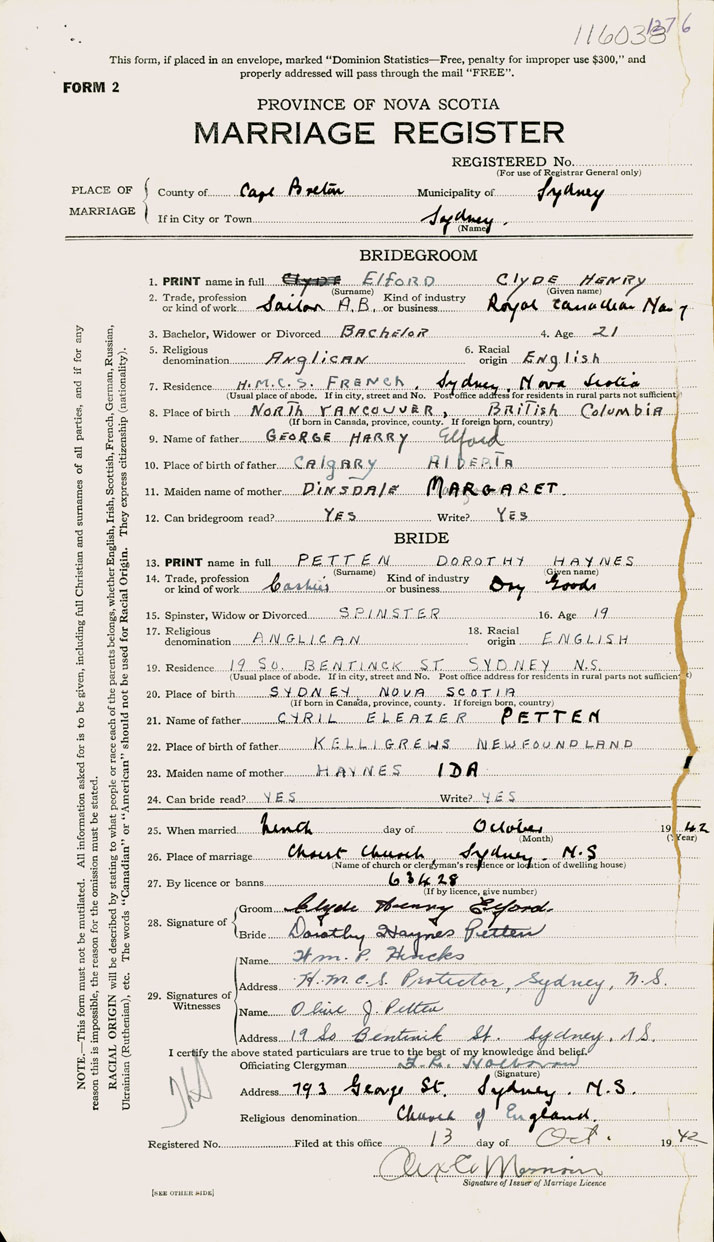 116038 1376
This form, if placed in an envelope, marked "Dominion Statistics—Free, penalty for improper use $300," and
properly addressed will pass through the mail "FREE".
FORM 2
PROVINCE OF NOVA SCOTIA
MARRIAGE REGISTER
REGISTERED No.
(For use of Registrar General only)
PLACE OF MARRIAGE
County of Cape Breton Municipality of Sydney
If in City or Town Sydney.
(Name)
BRIDEGROOM
1. PRINT name in full Clyde ELFORD CLYDE HENRY
(Surname) (Given name)
2. Trade, profession or kind of work Sailor A.B. Kind of industry or business Royal Canadian Navy
3. Bachelor, Widower or Divorced BACHELOR 4. Age 21
5. Religious denomination ANGLICAN 6. Racial origin ENGLISH
7. Residence H.M.C.S. FRENCH, Sydney, Nova Scotia
(Usual place of abode. If in city, street and No. Post office address for residents in rural parts not sufficient)
8. Place of birth NORTH VANCOUVER, BRITISH COLUMBIA
(If born in Canada, province, county. If foreign born, country)
9. Name of father GEORGE HARRY Elford
10. Place of birth of father CALGARY ALBERTA
11. Maiden name of mother DINSDALE MARGARET.
12. Can bridegroom read? YES Write? YES
BRIDE
13. PRINT name in full PETTEN DOROTHY HAYNES
(Surname) (Given name)
14. Trade, profession or kind of work Cashier Kind of industry or business Dry Goods
15. Spinster, Widow or Divorced SPINSTER 16. Age 19
17. Religious denomination ANGLICAN 18. Racial origin ENGLISH
19. Residence 19 SO. BENTINCK ST SYDNEY N.S.
(Usual place of abode. If in city, street and No. Post office address for residents in rural parts not sufficient)
20. Place of birth SYDNEY, NOVA SCOTIA
(If born in Canada, province, county. If foreign born, country)
21. Name of father CYRIL ELEAZER PETTEN
22. Place of birth of father KELLIGREWS NEWFOUNDLAND
23. Maiden name of mother HAYNES IDA
24. Can bride read? YES Write? YES
25. When married tenth day of October 1942
(Month) (Year)
26. Place of marriage Christ Church, Sydney. N.S
(Name of church or clergyman's residence or location of dwelling house)
27. By licence or banns 63428
(If by licence, give number)
28. Signature of
Groom Clyde Henry Elford.
Bride Dorothy Haynes Petten
29. Signatures of Witnesses
Name Wm. P. Hincks
Address H.M.C.S. Protector, Sydney, N.S.
Name Olive J. Petten
Address 19 So Bentinik St. Sydney, N.S.
I certify the above stated particulars are true to the best of my knowledge and belief.
Officiating Clergyman
(Signature)
Address 793 George St. Sydney. N.S.
Religious denomination Church of England.
Registered No. Filed at this office 13 day of Oct. 1942
Signature of Issuer of Marriage Licence
[SEE OTHER SIDE]
NOTE.—This form must not be mutilated. All information asked for is to be given, including full Christian and surnames of all parties, and if for any
reason this is impossible, the reason for the omission must be stated.
RACIAL ORIGIN will be described by stating to what people or race each of the parents belongs, whether English, Irish, Scottish, French, German, Russian,
Ukrainian (Ruthenian), etc. The words "Canadian" or "American" should not be used for Racial Origin. They express citizenship (nationality).